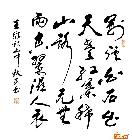 荆溪白石出
天寒红叶稀
山路元无
雨空翠湿人衣
王维